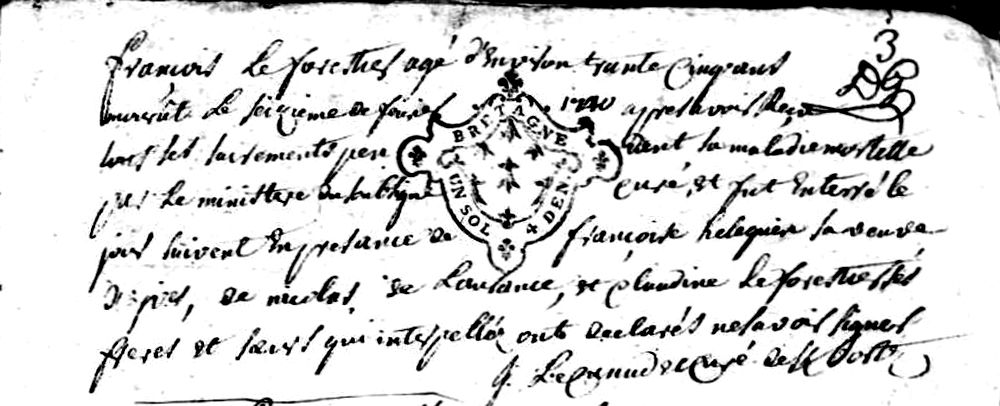 3
françois Le forestier agé d'Environ trante Cinq ans
mourut Le seizieme de fevrier 1740 apres avoir Reçu
tous ses sacrements pen dant sa maladie mortelle
par Le ministere du sousigné curé, et fut Enterré le
jour suivent En presance de françoise sa veuve
de nicolas, de Laurance, et claudine Le forestier ses
freres et sœurs qui interpellés ont declarés ne savoir signer
curé de
BRETAGNE
UN SOL 4 DEN